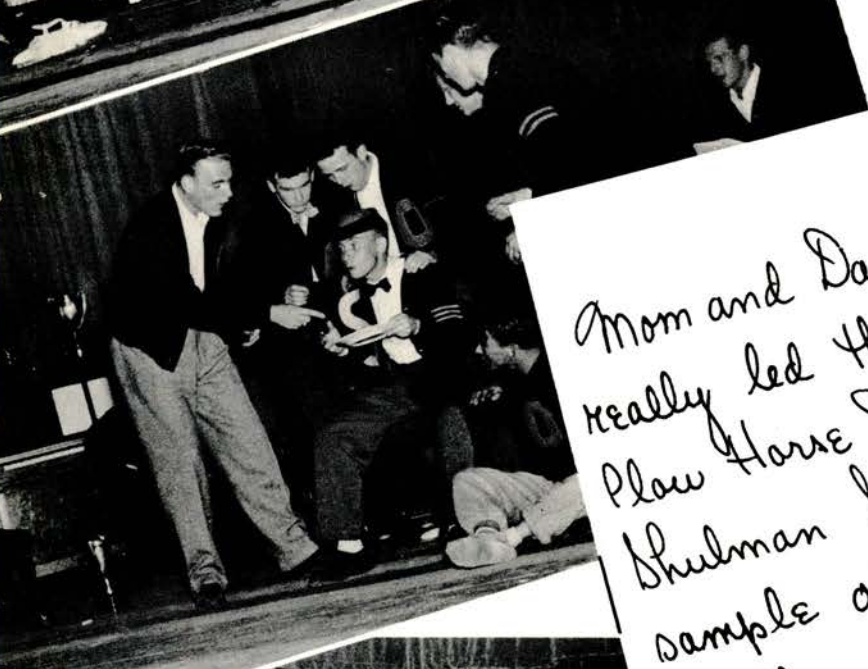 Mom and Da
really led th
Plow Horse
Shulman
sample o